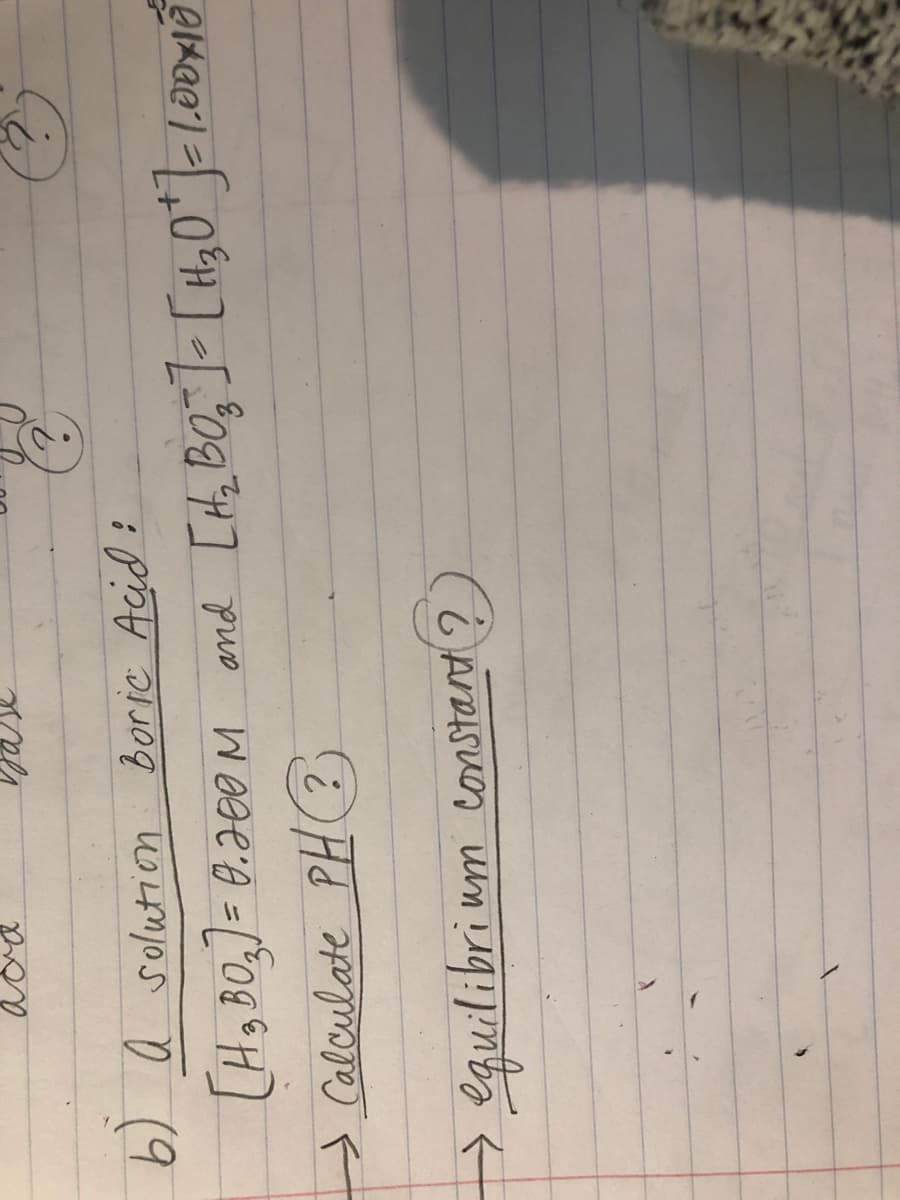 acid base (?)
(?)
b) a solution Boric Acid:
[H₃BO₃] = 0.200 M and [H₂BO₃⁻] = [H₃O⁺] = 1.00x10⁻⁵
→ Calculate PH (?)
→ equilibrium constant (?)